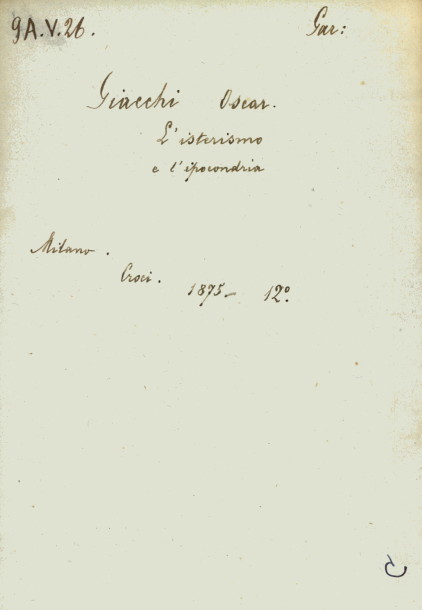 9A.V.26. Gar:
Giacchi Oscar.
L'isterismo
e l'ipocondria
Milano.
Croci.
1875 - 12º.